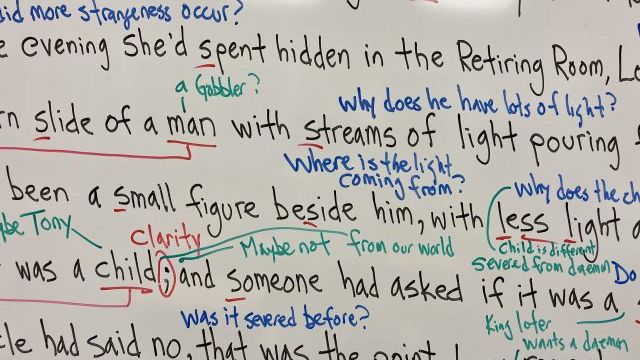 did more strangeness occur?
e evening she'd spent hidden in the Retiring Room, Lo
a Gobbler?
why does he have lots of light?
rn slide of a man with streams of light pouring
Where is the light
coming from?
why does the ch
been a small figure beside him, with less light a
be Tony
Clarity
Maybe not from our world
Child is different
severed from daemon
Do
was a child; and someone had asked if it was a
was it severed before?
King Iofer
wants a daemon
le had said no, that was the point